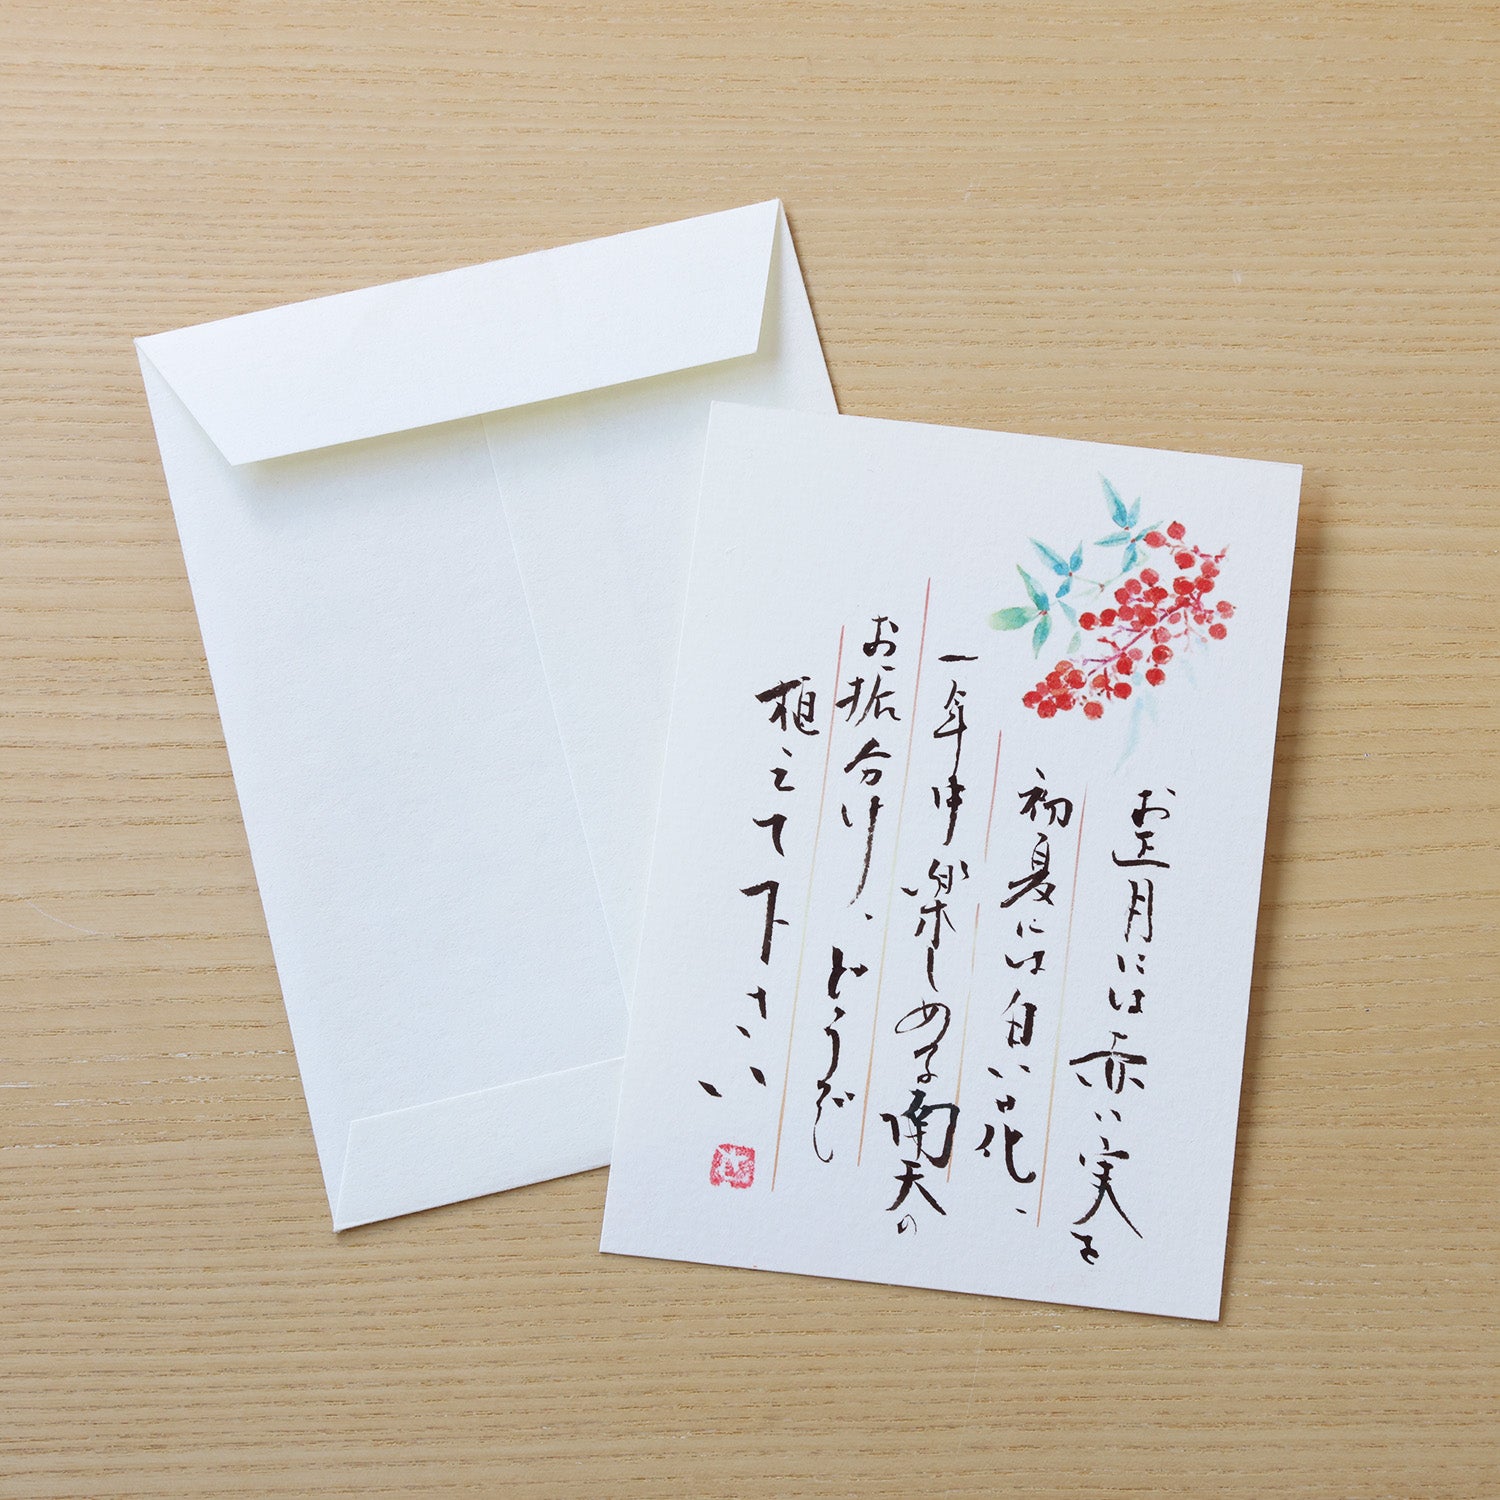 お正月には赤い実を
初夏には白い花、
一年中楽しめる南天の
お裾分け、どうぞ
植えて下さい